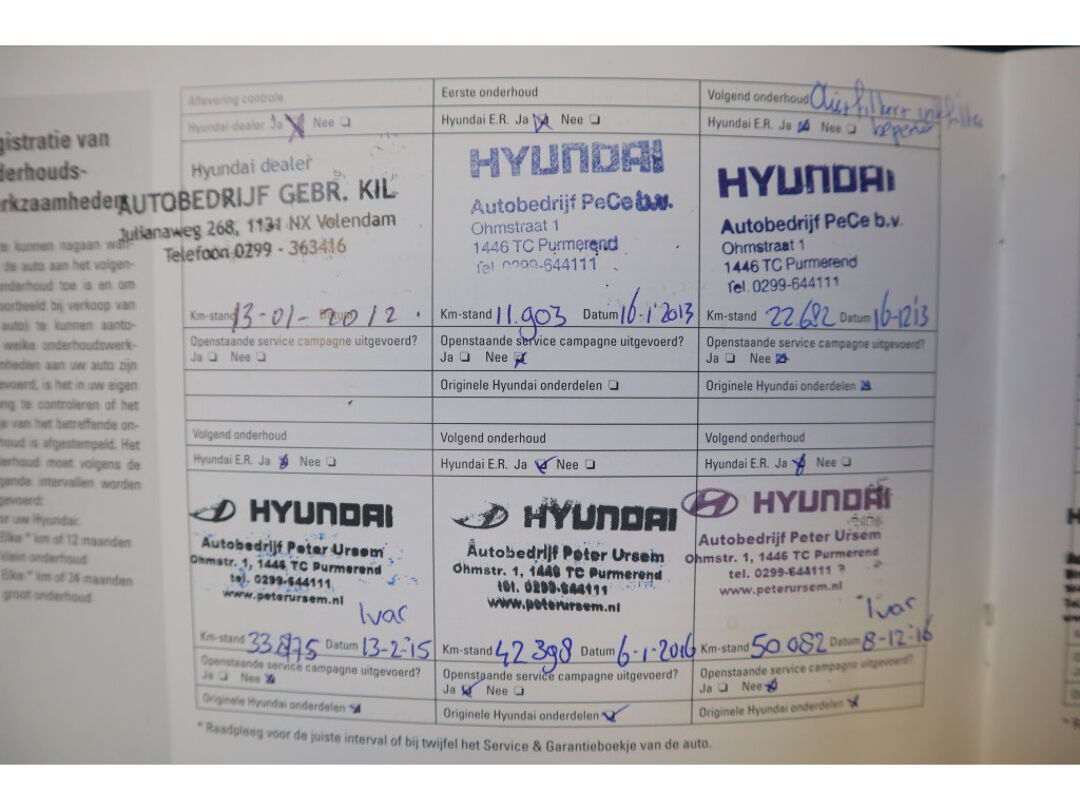 gistratie van
derhouds-
rkzaamheden
de auto aan het volgen-
nderhoud toe is en om
oorbeeld bij verkoop van
auto) te kunnen aanto-
welke onderhoudswerk-
mheden aan uw auto zijn
evoerd, is het in uw eigen
ng te controleren of het
van het betreffende on-
houd is afgestempeld. Het
erhoud moet volgens de
gende intervallen worden
gevoerd:
or uw Hyundai:
Elke * km of 12 maanden
klein onderhoud
Elke * km of 24 maanden
groot onderhoud
Aflevering controle
Hyundai-dealer Ja Nee
Hyundai dealer
AUTOBEDRIJF GEBR. KIL
Julianaweg 268, 1131 NX Volendam
Telefoon 0299 - 363416
Km-stand 13-01-2012
Openstaande service campagne uitgevoerd?
Ja Nee
Eerste onderhoud
Hyundai E.R. Ja Nee
HYUNDAI
Autobedrijf PeCe b.v.
Ohmstraat 1
1446 TC Purmerend
Tel. 0299-644111
Km-stand 11.903 Datum 16-1-2013
Openstaande service campagne uitgevoerd?
Ja Nee
Originele Hyundai onderdelen
Volgend onderhoud
Hyundai E.R. Ja Nee
HYUNDAI
Autobedrijf PeCe b.v.
Ohmstraat 1
1446 TC Purmerend
Tel. 0299-644111
Km-stand 22.682 Datum 16-12-13
Openstaande service campagne uitgevoerd?
Ja Nee
Originele Hyundai onderdelen
Volgend onderhoud
Hyundai E.R. Ja Nee
HYUNDAI
Autobedrijf Peter Ursem
Ohmstr. 1, 1446 TC Purmerend
tel. 0299-644111
www.peterursem.nl
Ivar
Km-stand 33.875 Datum 13-2-'15
Openstaande service campagne uitgevoerd?
Ja Nee
Originele Hyundai onderdelen
Volgend onderhoud
Hyundai E.R. Ja Nee
HYUNDAI
Autobedrijf Peter Ursem
Ohmstr. 1, 1446 TC Purmerend
tel. 0299-644111
www.peterursem.nl
Km-stand 42398 Datum 6-1-2016
Openstaande service campagne uitgevoerd?
Ja Nee
Originele Hyundai onderdelen
Volgend onderhoud
Hyundai E.R. Ja Nee
HYUNDAI
Autobedrijf Peter Ursem
Ohmstr. 1, 1446 TC Purmerend
tel. 0299-644111
www.peterursem.nl
Ivar
Km-stand 50.082 Datum 8-12-'16
Openstaande service campagne uitgevoerd?
Ja Nee
Originele Hyundai onderdelen
* Raadpleeg voor de juiste interval of bij twijfel het Service & Garantieboekje van de auto.